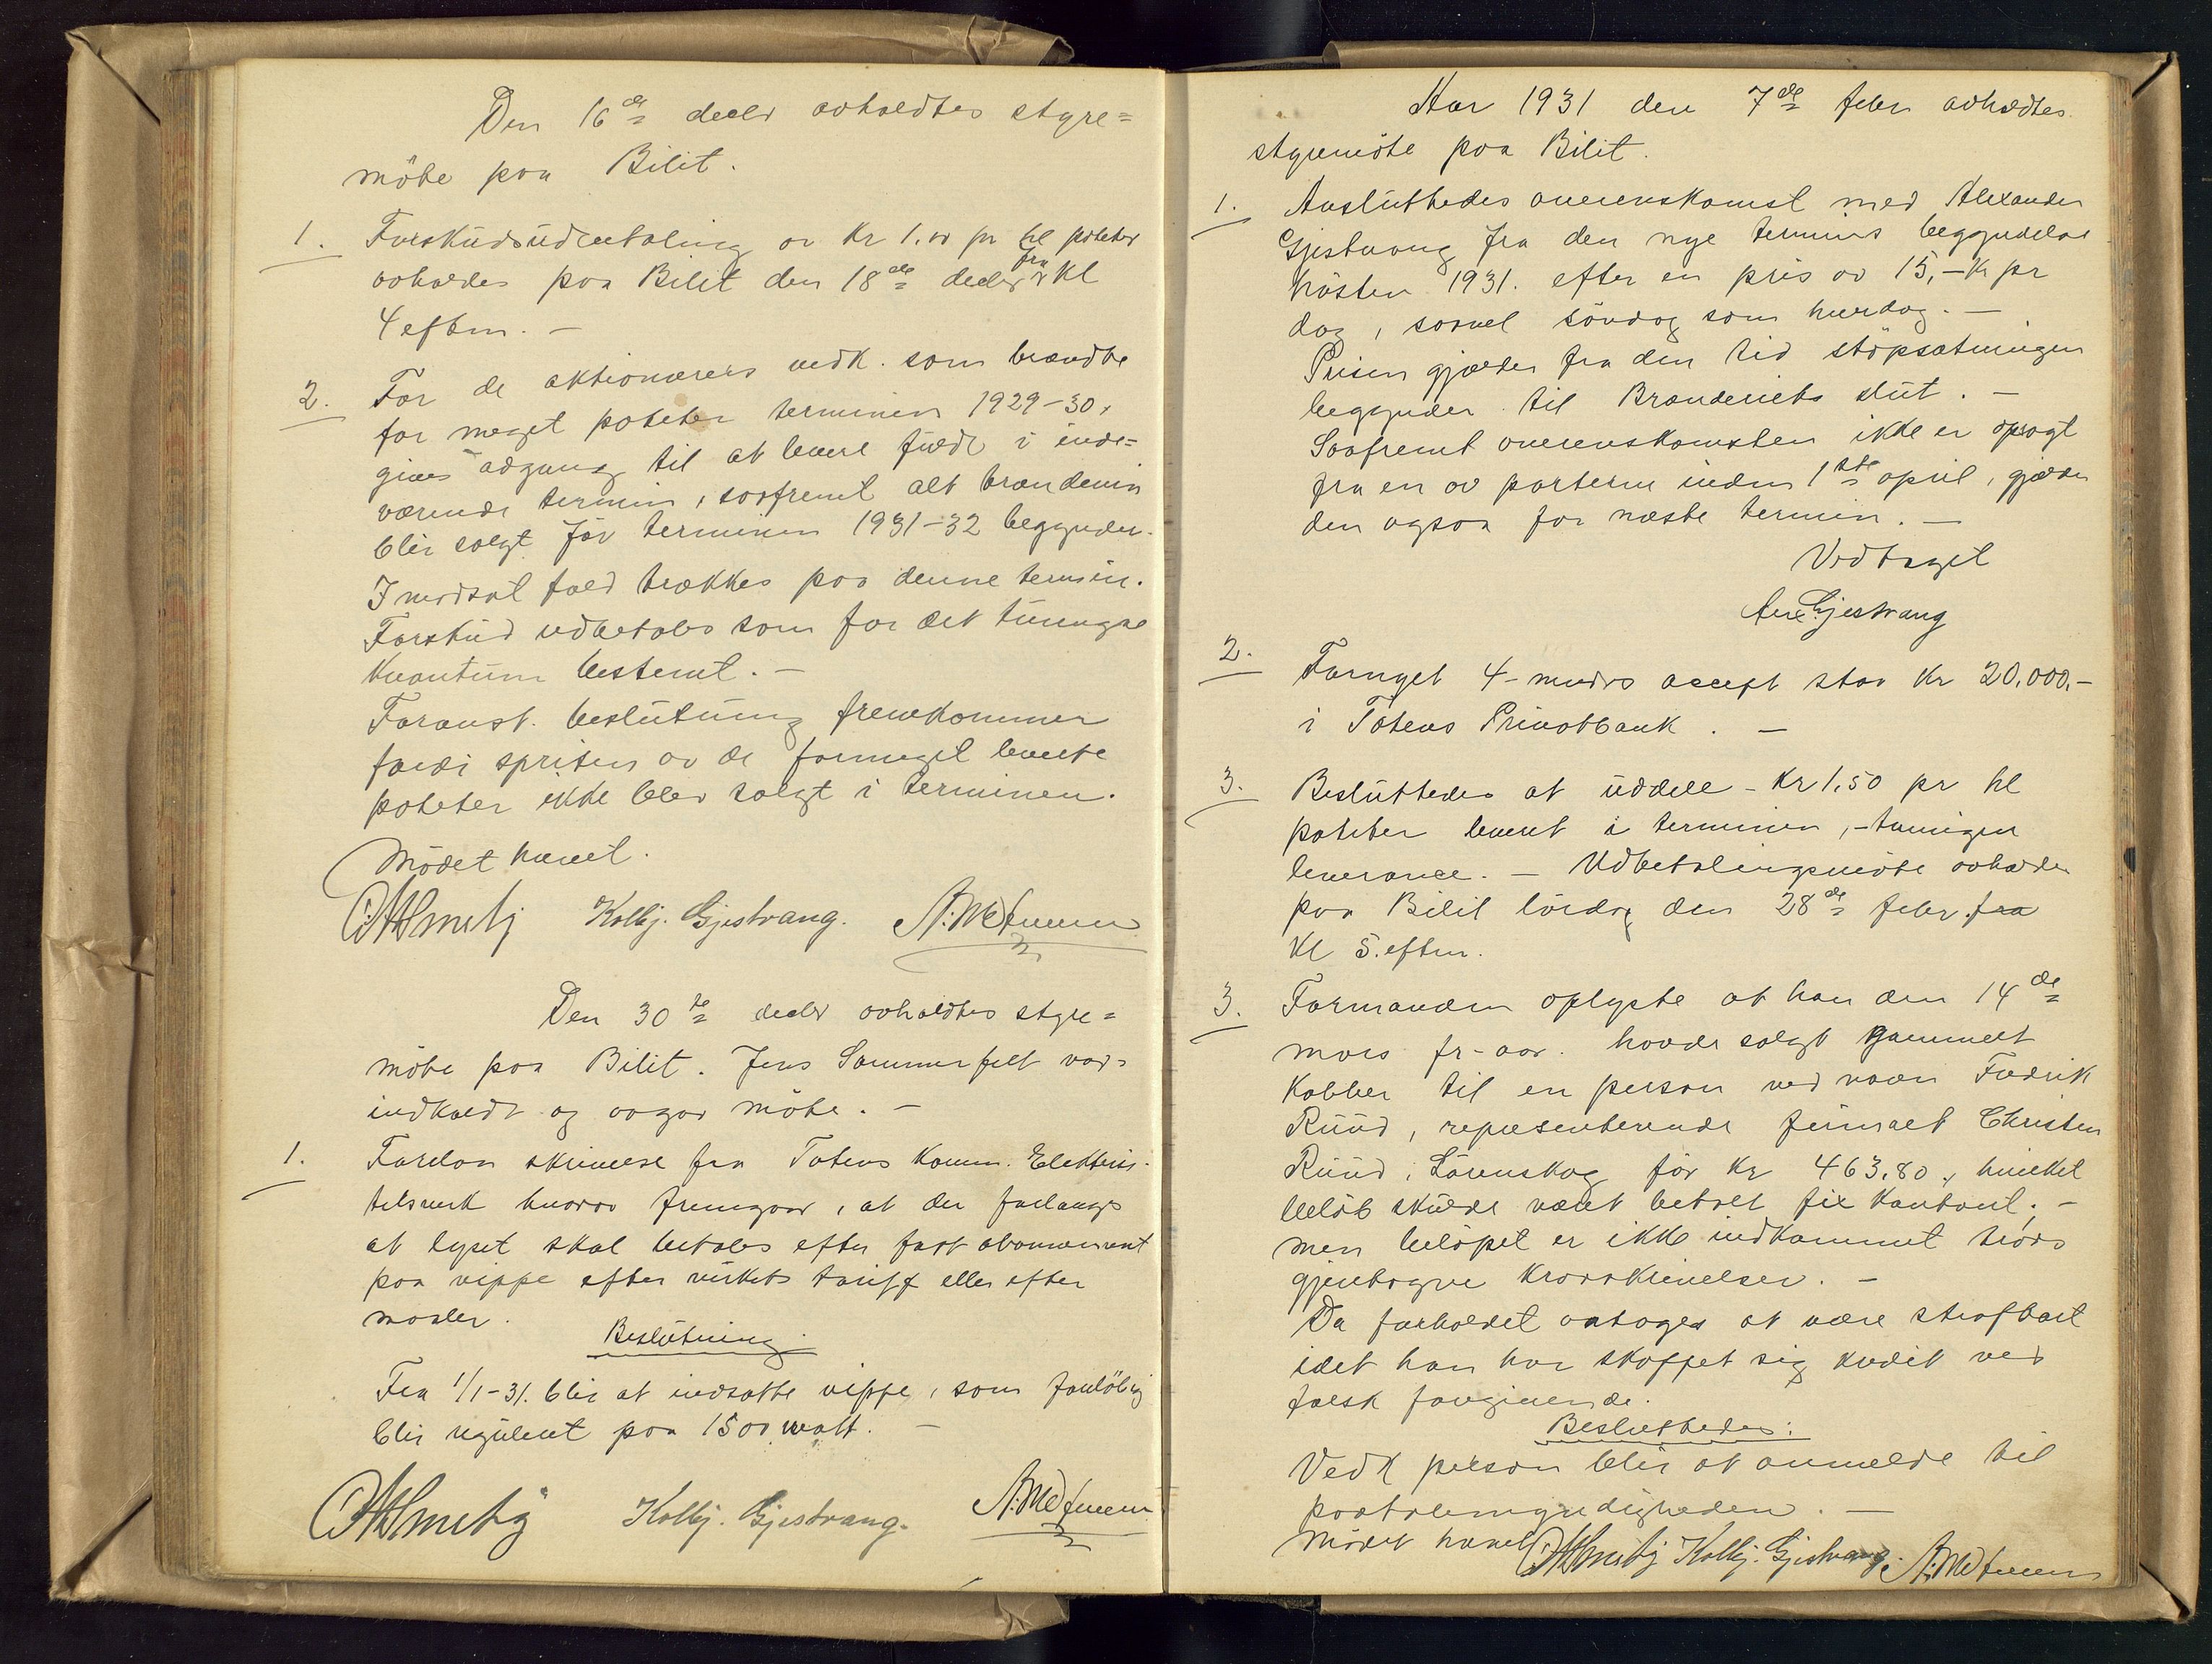 Den 16de decbr avholdtes styre=
möte paa Bilit.
1. Forskudsudbetaling av Kr 1.00 pr hl poteter
avholdes paa Bilit den 18de decbr fra Kl
4 eftm. —
2. For de aktionærers vedk. som brændte
for meget poteter terminen 1929-30,
gives adgang til at levere fuldt i inde=
værende termin, saafremt alt brændevin
blir solgt før terminen 1931-32 begynder.
I modsat fald trækkes paa denne termin.
Forskud udbetales som for det tvungne
kvantum bestemt. —
Foranst. beslutning fremkommer
fordi spriten av de formeget leverte
poteter ikke blev solgt i terminen.
Mödet hævet.
Kolbj. Gjestvang.
Den 30te decbr avholdtes styre=
möte paa Bilit. Jens Sommerfelt var
indkaldt og avgav möte. —
1. Forelaa skrivelse fra Totens Komm. Elektrici-
tetsverk hvorav fremgaar, at der forlanges
at lyset skal betales efter fast abonnement
paa vippe efter verkets tariff eller efter
maaler.
Beslutning
Fra 1/1-31. blir at indsætte vippe, som forlöbig
blir regulert paa 1500 watt. —
Kolbj. Gjestvang.
Aar 1931 den 7de febr avholdtes
styremöte paa Bilit.
1. Avsluttedes overenskomst med Alexander
Gjestvang fra den nye termins begyndelse
hösten 1931. efter en pris av 15,- Kr pr
dag, saavel söndag som hverdag. —
Prisen gjælder fra den tid stöpsætningen
begynder til Brænderiets slut. —
Saafremt overenskomsten ikke er opsagt
fra en av parterne inden 1ste april, gjælder
den ogsaa for næste termin. —
Vedtaget
Alex Gjestvang
2. Fornyet 4-mndrs accept stor Kr 20,000,-
i Totens Privatbank. —
3. Besluttedes at uddele - Kr 1,50 pr hl
poteter levert i terminen, - tvungen
leverance. — Udbetalingsmöte avholdes
paa Bilit lördag den 28de febr. fra
Kl 5. eftm.
3. Formanden oplyste at han den 14de
mars fr-aar. havde solgt gammelt
kobber til en person ved navn Fredrik
Ruud, representerende firmaet Christen
Ruud, Lörenskog for Kr 463,80, hvilket
belöb skulde været betalt pr kontant; -
men belöpet er ikke indkommet tross
gjentagne kravskrivelser. —
Da forholdet antages at være strafbart
idet han har skaffet sig kredit ved
falsk foregivende.
Besluttedes:
Vedk person blir at anmelde til
paatalemyndigheden. —
Mödet hævet Kolbj. Gjestvang.